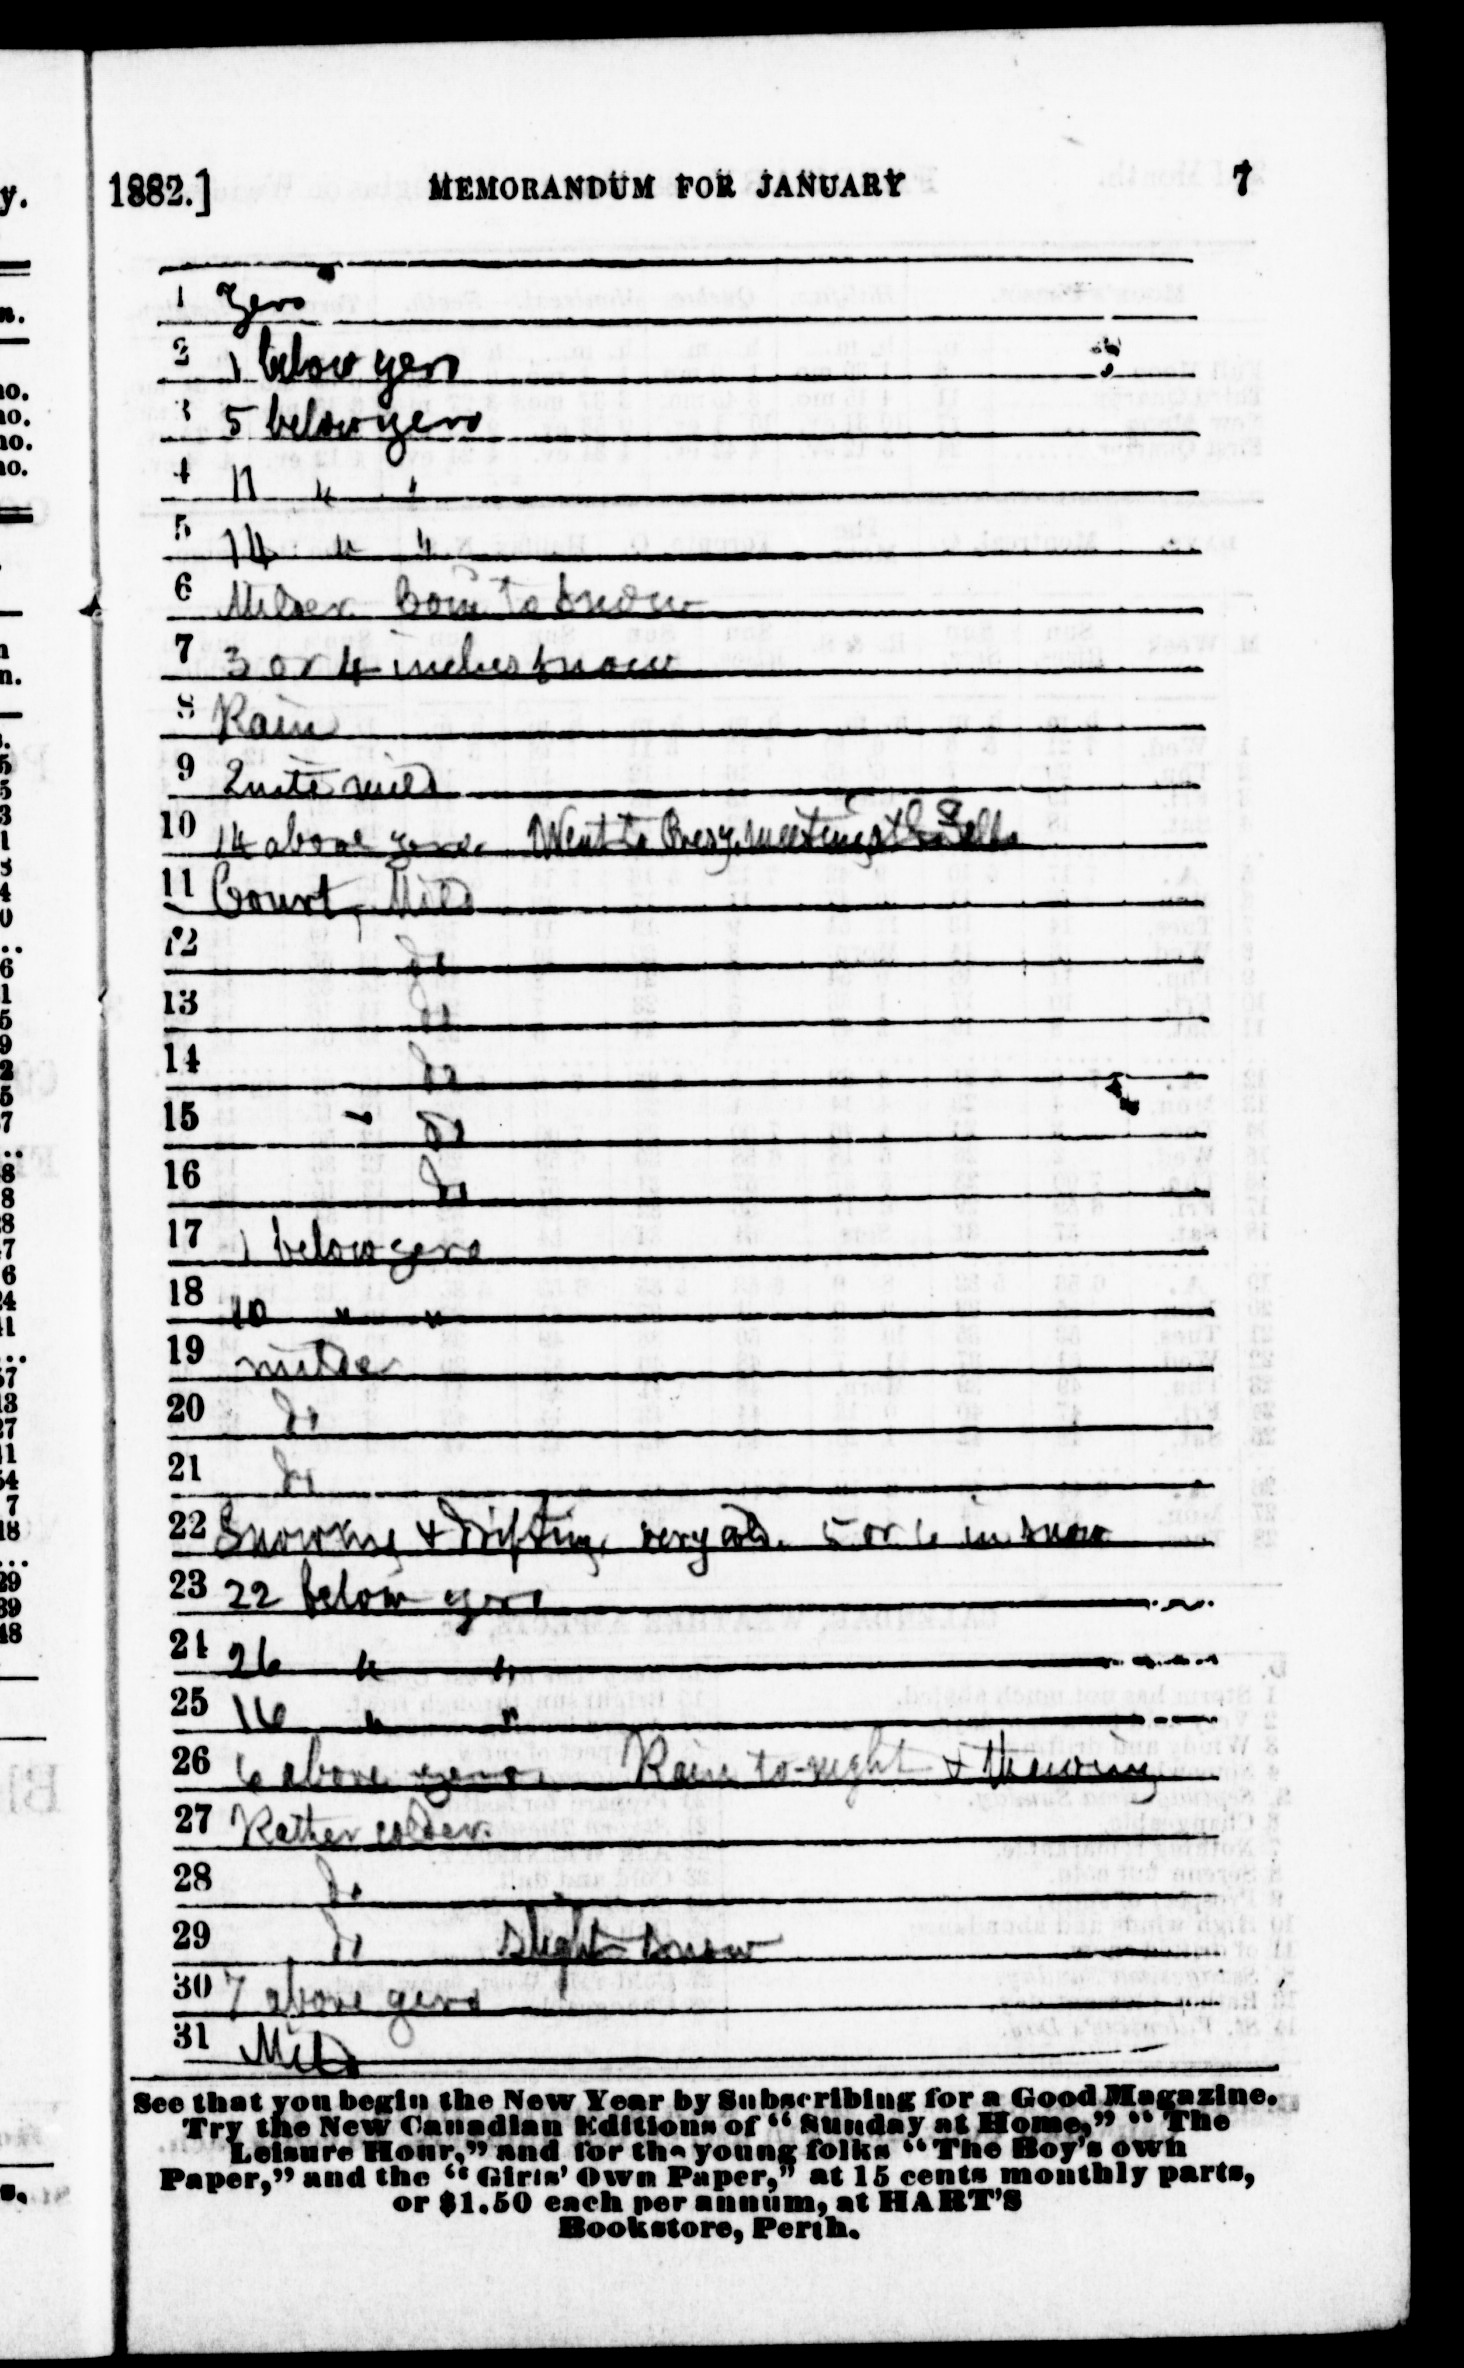 1882.] MEMORANDUM FOR JANUARY 7
1 Zero
2 1 below zero
3 5 below zero
4 11 " "
5 14 " "
6 Milder. Com. to snow
7 3 or 4 inches snow
8 Rain
9 Quite mild
10 14 above zero. Went to Presy. meeting
11 Court, Mild
12 do
13 do
14 do
15 " do
16 do
17 1 below zero
18 10 " "
19 milder
20 do
21 do
22 Snowing & drifting, very cold. 5 or 6 in snow
23 22 below zero
24 26 " "
25 16 " "
26 6 above zero. Rain to-night & thawing
27 Rather colder.
28 do
29 do slight snow
30 7 above zero
31 Mild
See that you begin the New Year by Subscribing for a Good Magazine.
Try the New Canadian Editions of “Sunday at Home,” “The
Leisure Hour,” and for the young folks “The Boy's own
Paper,” and the “Girls' Own Paper,” at 15 cents monthly parts,
or $1.50 each per annum, at HART'S
Bookstore, Perth.